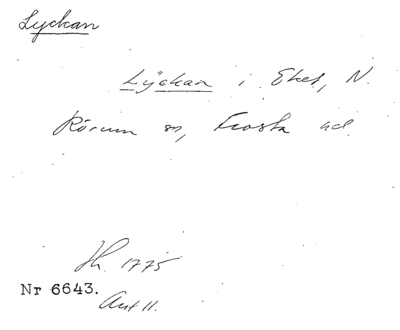 Lyckan
Lÿckan i Eket, N.
Rörum sn, Frosta hd.
Jh. 1775
Nr 6643.
Akt 11.